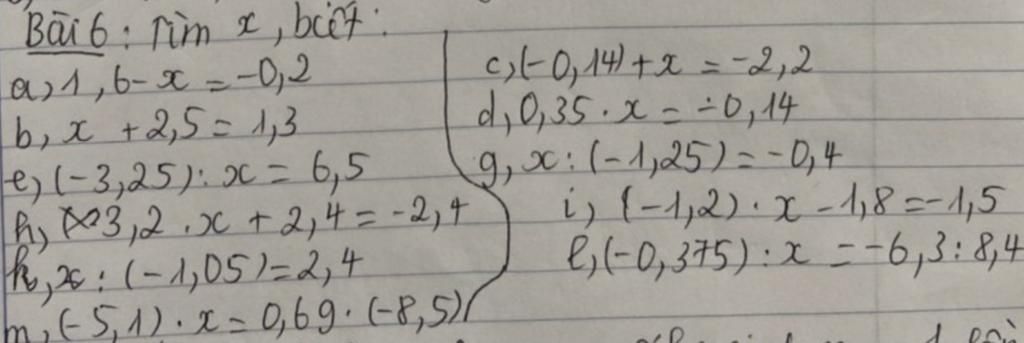 Bài 6: Tìm x, biết:
a, 1,6 - x = -0,2
b, x + 2,5 = 1,3
e, (-3,25) : x = 6,5
h, 3,2 . x + 2,4 = -2,4
k, x : (-1,05) = 2,4
m, (-5,1) . x = 0,69 . (-8,5)
c, (-0,14) + x = -2,2
d, 0,35 . x = -0,14
g, x : (-1,25) = -0,4
i, (-1,2) . x - 1,8 = -1,5
l, (-0,375) : x = -6,3 : 8,4